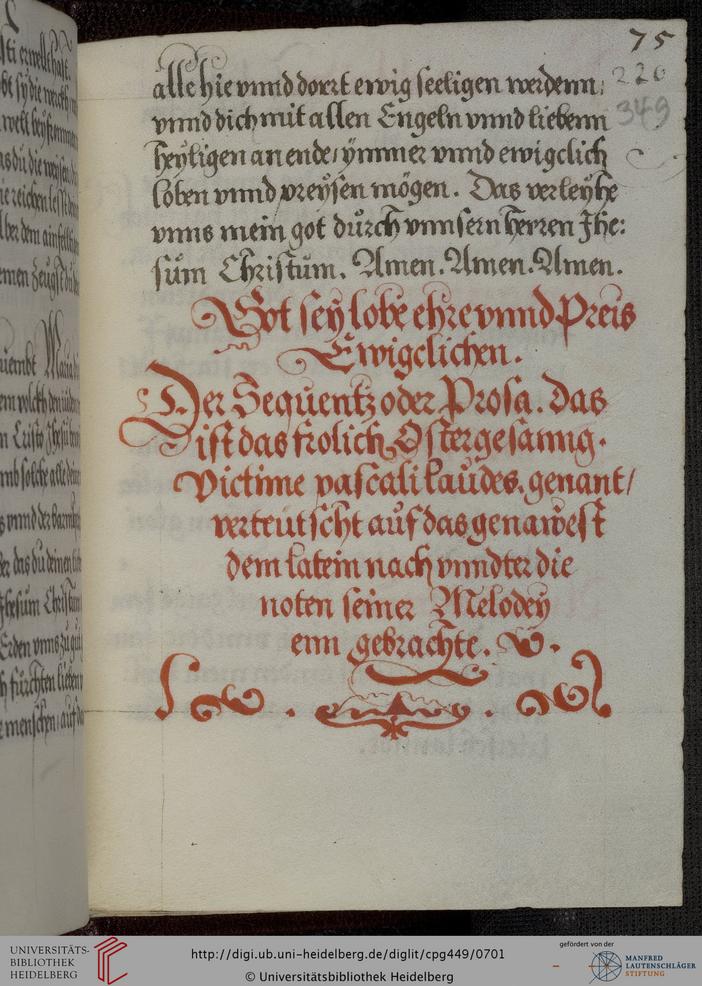 75
220
349
alle hie vnnd dorrt ewig seeligen werdenn,
vnnd dich mit allen Engeln vnnd liebenn
heyligen an ende, ymmer vnnd ewigclich
loben vnnd preysen mögen. Das verleyhe
vnns mein got durch vnnsern herren Jhe:
sum Christum. Amen. Amen. Amen.
Got sey lobe ehre vnnd Preis
Ewigclichen.
Der Sequentz oder Prosa. das
ist das frolich Ostergesanng.
Victime pascali laudes. genant/
verteutscht auf das genawest
dem latein nach vnndter die
noten seiner Melodey
enn gebrachte.
UNIVERSITÄTS-
BIBLIOTHEK
HEIDELBERG
http://digi.ub.uni-heidelberg.de/diglit/cpg449/0701
© Universitätsbibliothek Heidelberg
gefördert von der
MANFRED
LAUTENSCHLÄGER
STIFTUNG